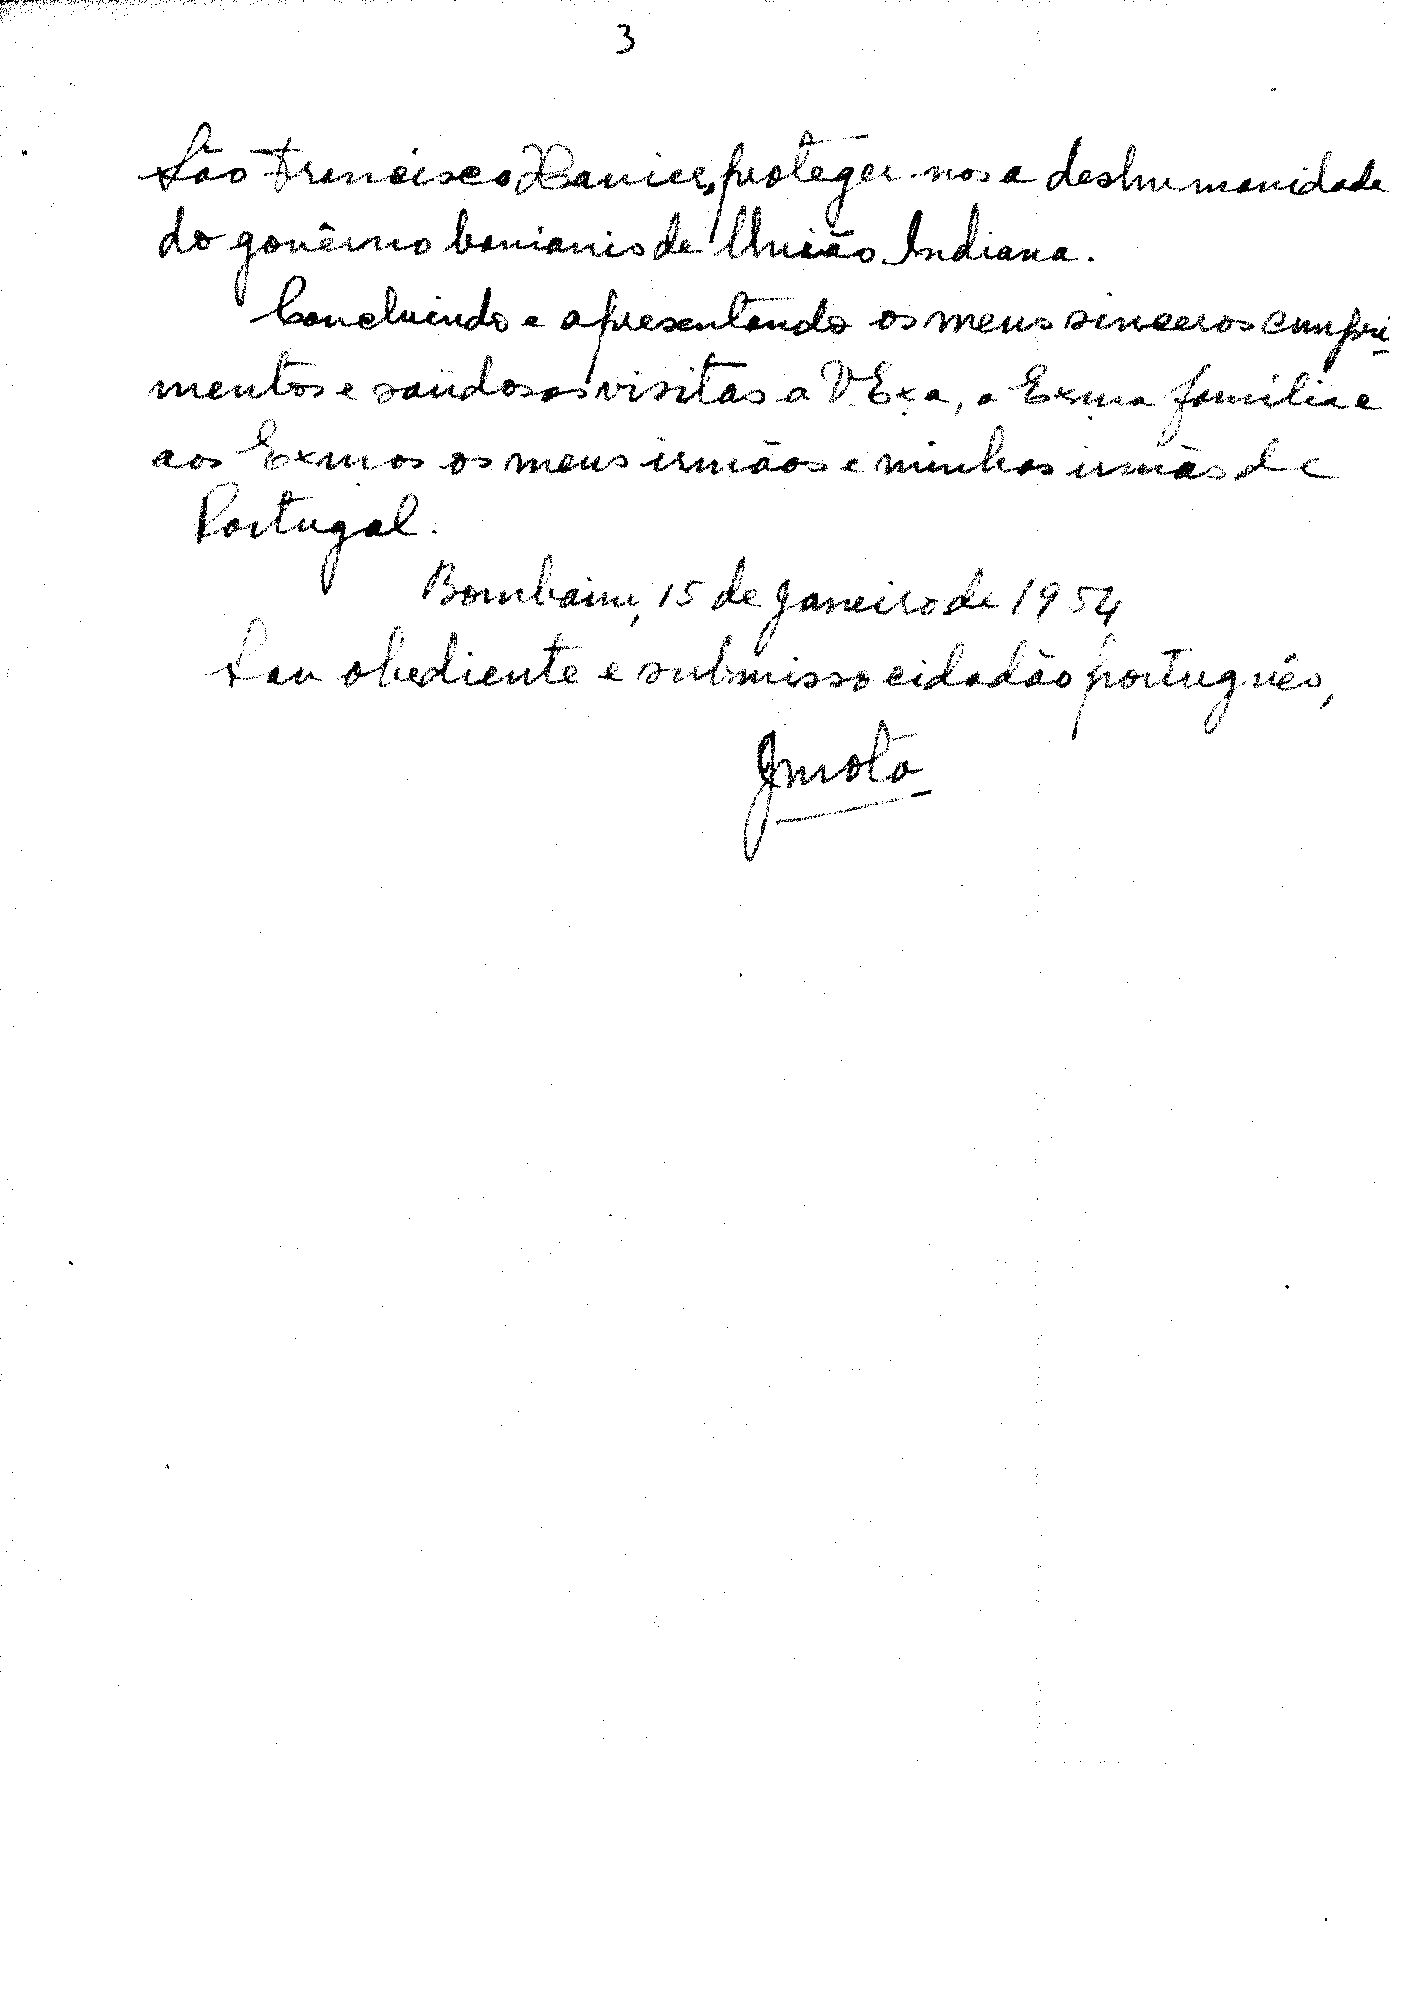 3
São Francisco Xavier, proteger-nos a deshumanidade
do govêrno banianis de União Indiana.
Concluindo e apresentando os meus sinceros cumpri-
mentos e saudosas visitas a V. Exa, a Exma família e
aos Exmos os meus irmãos e minhas irmãs de
Portugal.
Bombaim, 15 de Janeiro de 1954
Sou obediente e submisso cidadão português,
JMota